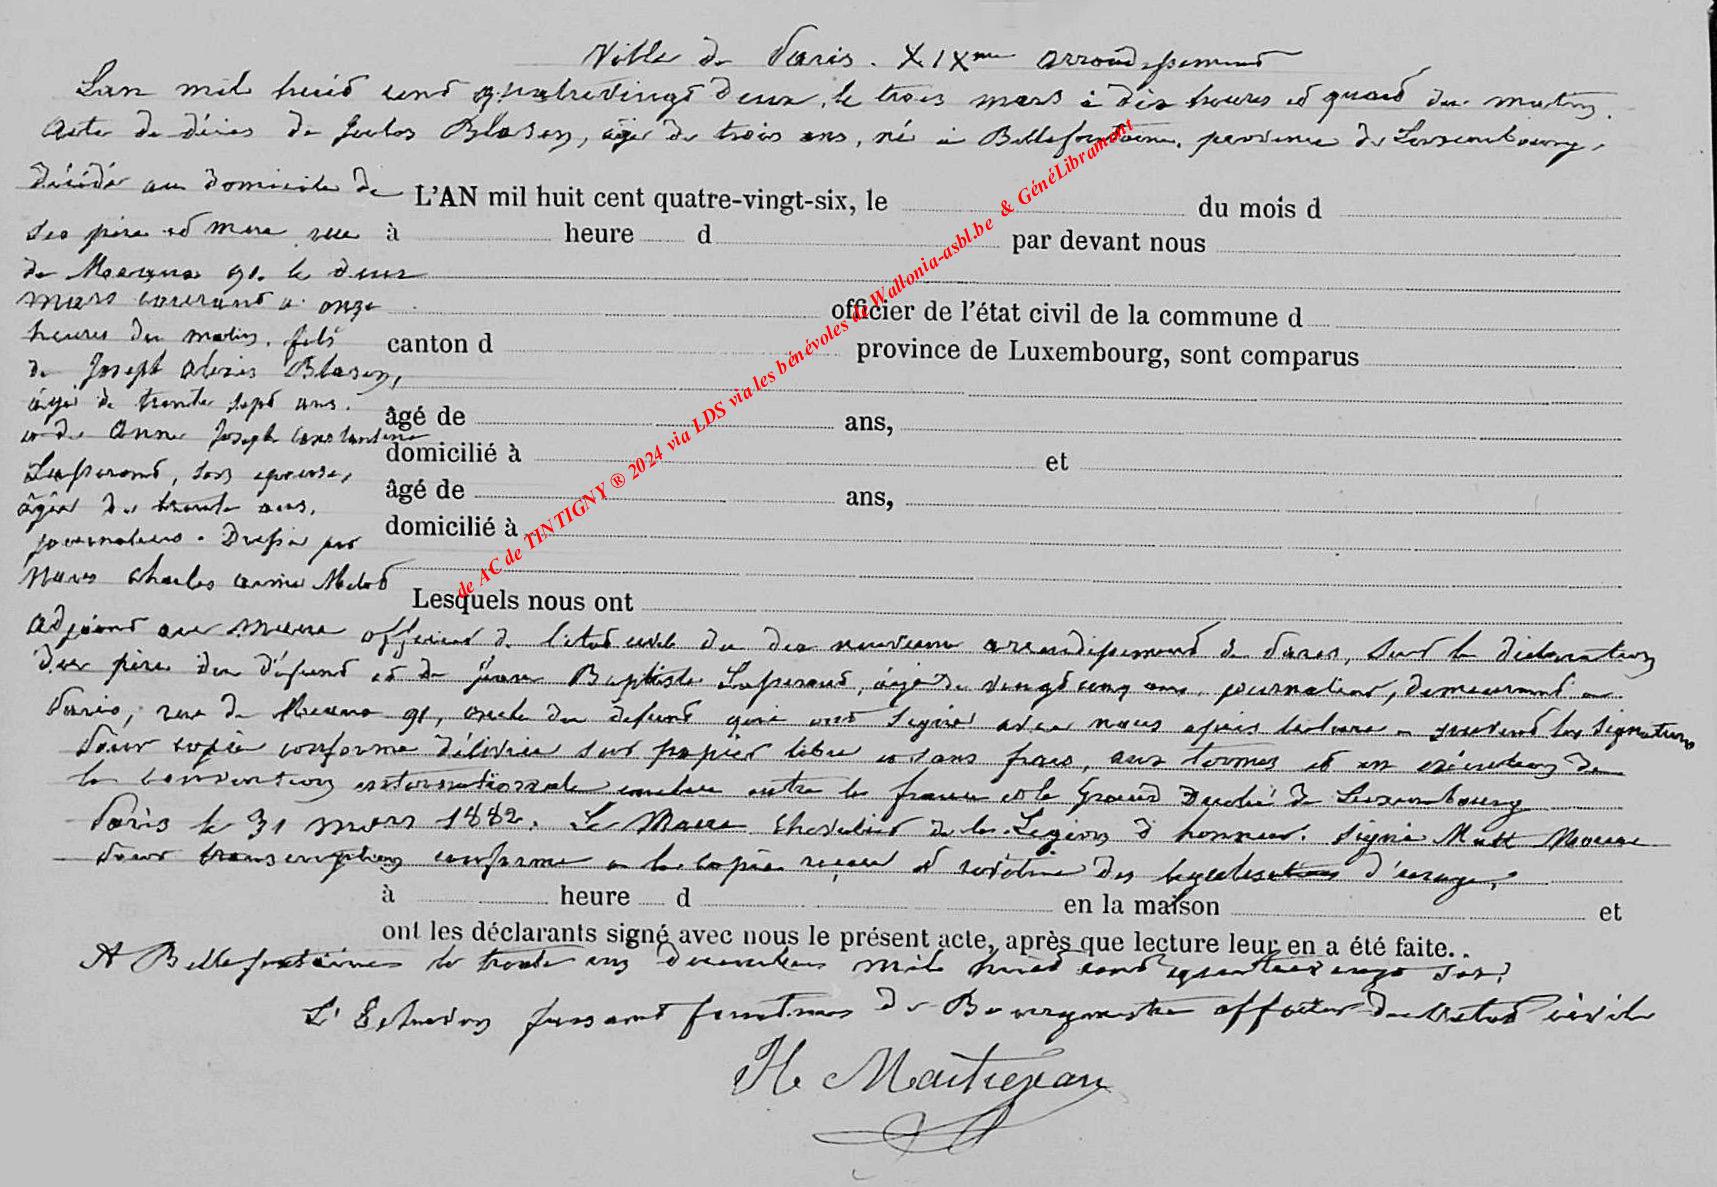 Ville de Paris. XIXme arrondissement
L'an mil huit cent quatrevingt deux, le trois mars à dix heures et quart du matin.
Acte de décès de Jules Blasen, âgé de trois ans, né à Bellefontaine, province de Luxembourg,
décédé au domicile de
ses père et mère rue
de Meaux 91. le deux
mars courant à onze
heures du matin. fils
de Joseph Alexis Blasen,
âgé de trente sept ans.
et de Anne Joseph Constantine
son épouse,
âgée de trente ans.
journaliers. Dressé par
Nous Charles
L'AN mil huit cent quatre-vingt-six, le du mois d
à heure d par devant nous
officier de l'état civil de la commune d
canton d province de Luxembourg, sont comparus
âgé de ans,
domicilié à et
âgé de ans,
domicilié à
Lesquels nous ont
de AC de TINTIGNY ® 2024 via LDS via les bénévoles de Wallonia-asbl.be & GénéLibramont
adjoint au maire officier de l'état civil du dix neuvième arrondissement de Paris, sur la déclaration
du père du défunt et de Jean Baptiste âgé de vingt cinq ans, journalier, demeurant à
Paris, rue de Meaux 91, oncle du défunt qui ont signé avec nous après lecture suivent les signatures
Pour copie conforme délivrée sur papier libre et sans frais, aux termes et en exécution de
la convention internationale conclue entre la france et le Grand Duché de Luxembourg
Paris le 31 mars 1882. Le Maire Chevalier de la Légion d'honneur. signé
Pour transcription conforme à la copie reçue et revêtue des légalisations d'usage,
à heure d en la maison et
ont les déclarants signé avec nous le présent acte, après que lecture leur en a été faite..
A Bellefontaine le trente un décembre mil huit cent quatrevingt six.
L'Echevin faisant fonctions de Bourgmestre officier de l'état civil
H. Maitrejean